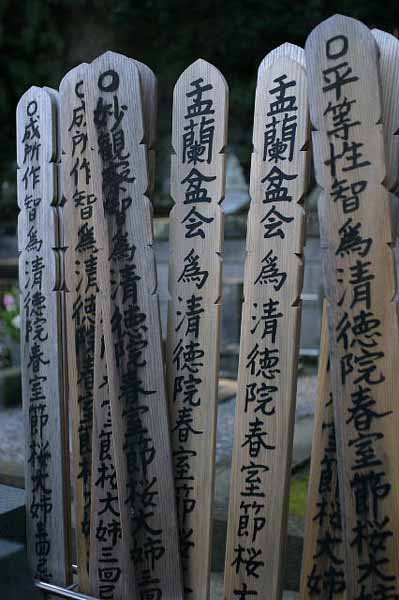 〇平等性智為清徳院春室節桜大姉
盂蘭盆会為清徳院春室節桜大
盂蘭盆会為清徳院春室節桜大
〇妙観察智為清徳院春室節桜大姉
〇成所作智為清徳院春室節桜大姉三回
〇成所作智為清徳院春室節桜大姉三回忌
節桜大姉